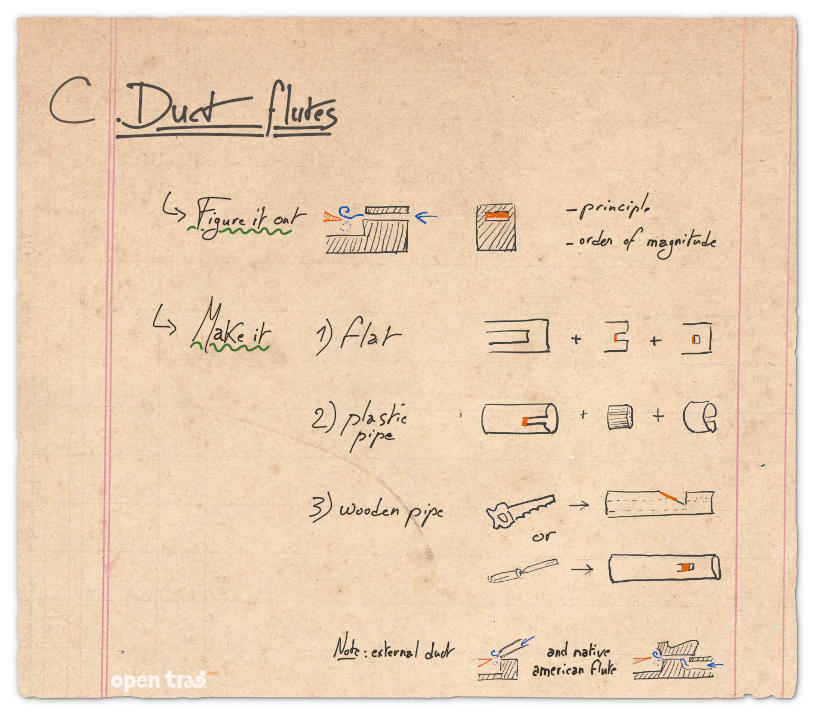 C. Duct flutes
Figure it out
- principle
- order of magnitude
Make it
1) flat
+ +
2) plastic
pipe
+ +
3) wooden pipe
or
Note: external duct
and native
american flute
open trad.net